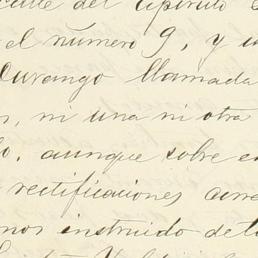 calle del Espíritu
el número 9, y u
Durango llamada
s, ni una ni otra
lo, aunque sobre e
rectificaciones
mos instruido de